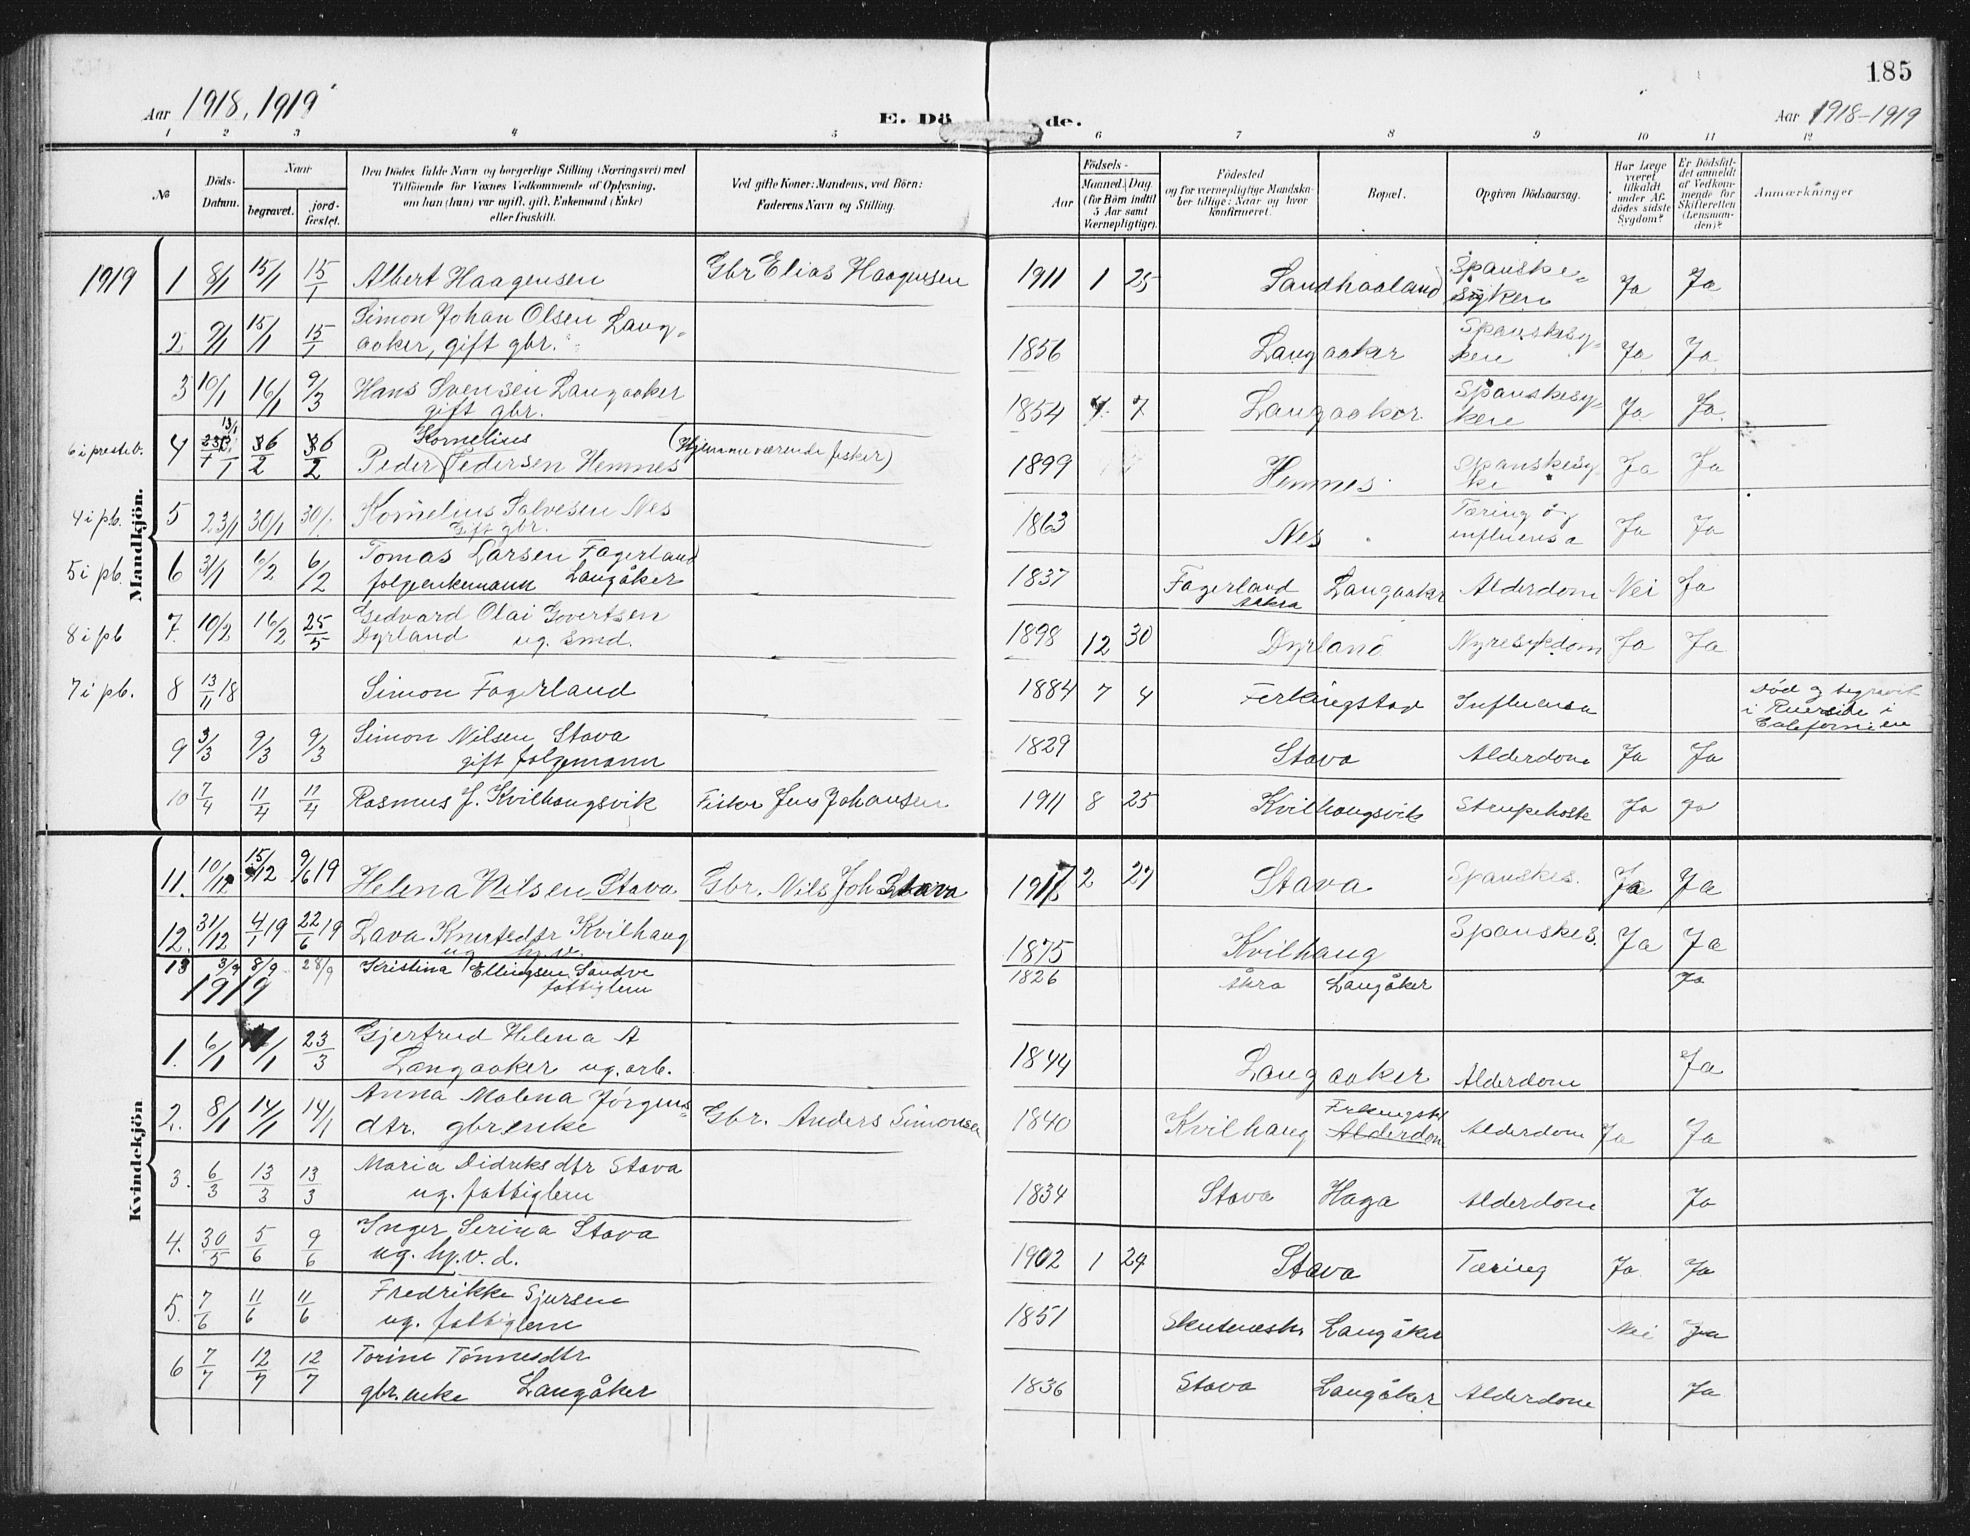 185
Aar 1918, 1919
E. Dö de.
Aar 1918-1919
1 2 3 4 5 6 7 8 9 10 11 12
№
Döds-Datum.
Naar
begravet.
jord-festet.
Den Dödes fulde Navn og borgerlige Stilling (Næringsvei) med
Tilföiende för Voxnes Vedkommende af Oplysning,
om han (hun) var ugift, gift, Enkemand (Enke)
eller fraskilt.
Ved gifte Koner: Mandens, ved Börn:
Faderens Navn og Stilling.
Födsels-
Aar
Maaned. Dag
(for Börn indtil
5 Aar samt
Værnepligtige).
Födested
og for værnepligtige Mandska-
ber tillige: Naar og hvor
konfirmeret.
Bopæl.
Opgiven Dödsaarsag.
Har Læge
været
tilkaldt
under Af-
dödes sidste
Sygdom?
Er Dödsfal-
det anmeldt
af Vedkom-
mende for
Skifteretten
(Lensman-
den)?
Anmærkninger
Mandkjön.
1919 1 8/1 15/1 15/1 Albert Haagensen Gbr Elias Haagensen 1911 1 25 Sandhaaland Spanske-
syken Ja Ja
2 9/1 15/1 15/1 Simon Johan Olsen Lang-
aaker, gift gbr. 1856 Langaaker Spanskesy-
ken Ja Ja
3 10/1 16/1 9/3 Hans Svensen Langaaker
gift gbr. 1854 7 Langaaker Spanskesy-
ken Ja Ja
6 i presteb. 4 13/1 6/2 6/2 Kornelius
Peder Pedersen Hemnes (Hjemmeværende fisker) 1899 Hemnes Spanskesy-
ke Ja Ja
4 i pb. 5 23/1 30/1 30/1 Kornelius Salvesen Nes
Gift gbr. 1863 Nes Tæring og
influensa Ja Ja
5 i pb. 6 31/1 6/2 6/2 Tomas Larsen Fagerland
folgeenkemann Langåker 1837 Fagerland
Skra Langaaker Alderdom Nei Ja
8 i pb 7 10/2 16/2 25/5 Gedvard Olai Govertsen
Dyrland ug. smd. 1898 12 30 Dyrland Nyresykdom Ja Ja
7 i pb. 8 13/11 18 Simon Fagerland 1884 7 4 Ferkingstad Influensa Död og begravet
i Riverside i
Californien
9 3/3 9/3 9/3 Simon Nilsen Stava
gift folgemann 1829 Stava Alderdom Ja Ja
10 7/4 11/4 11/4 Rasmus J. Kvilhaugsvik Fisker Jens Johansen 1911 8 25 Kvilhaugsvik Strupehoste Ja Ja
Kvindekjön
11. 10/12 15/12 9/6 19 Helena Nilsen Stava Gbr. Nils Joh Stava 2 27 Stava Spanskes. Ja Ja
12. 31/12 4/1 19 22/6 19 Lava Knutsdtr Kvilhaug
ug hp.v. 1875 Kvilhaug Spanskes. Ja Ja
13 3/9 8/9 28/9 Kristina Ellingsen Sandve
fattiglem 1826 Skra Langåker Ja
1919
1. 6/1 23/3 Gjertrud Helena A
Langaaker ug. arb. 1844 Langaaker Alderdom Ja
2. 8/1 14/1 14/1 Anna Malena Jörgens-
dtr. gbrenke Gbr. Anders Simonsen 1840 Kvilhaug Ferkingstd
Alderdom Alderdom Ja Ja
3. 6/3 13/3 13/3 Maria Didriksdtr Stava
ug. fattiglem 1834 Stava Haga Alderdom Ja
4. 30/5 5/6 9/6 Inger Serina Stava
ug. hp.v.d. 1902 1 24 Stava Tæring Ja Ja
5. 7/6 11/6 11/6 Fredrikke Sjursen
ug. fattiglem 1851 Skutenesh. Langåker Nei Ja
6 7/7 12/7 12/7 Torine Tönnesdtr
gbr.enke Langåker 1836 Stava Langåker Alderdom Ja